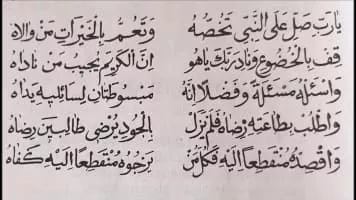 يَارَبِّ صَلِّ عَلَى النَّبِيِّ تَخُصُّهُ وَتَعُمُّ بِالْخَيْرَاتِ مَنْ وَالَاهُ
قِفْ بِالْخُضُوعِ وَنَادِ رَبَّكَ يَاهُو اِنَّ الْكَرِيمَ يُجِيبُ مَنْ نَادَاهُ
وَاسْئَلْهُ مَسْئَلَةً وَفَضْلًا اِنَّهُ مَبْسُوطَتَانِ لِسَائِلِيهِ يَدَاهُ
وَاطْلُبْ بِطَاعَتِهِ رِضَاهُ فَلَمْ يَزَلْ بِالْجُودِ يُرْضِي طَالِبِينَ رِضَاهُ
وَاقْصِدْهُ مُنْقَطِعًا اِلَيْهِ فَكُلُّ مَنْ يَرْجُوهُ مُنْقَطِعًا اِلَيْهِ كَفَاهُ